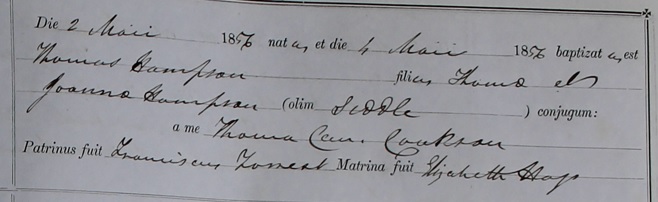 Die 2 Maii 1856 natus, et die 4 Maii 1856 baptizatus est
Thomas Hampson filius Thomæ et
Joannæ Hampson (olim Siddle) conjugum:
a me Thoma Cookson
Patrinus fuit Franciscus Forrest Matrina fuit Elizabeth